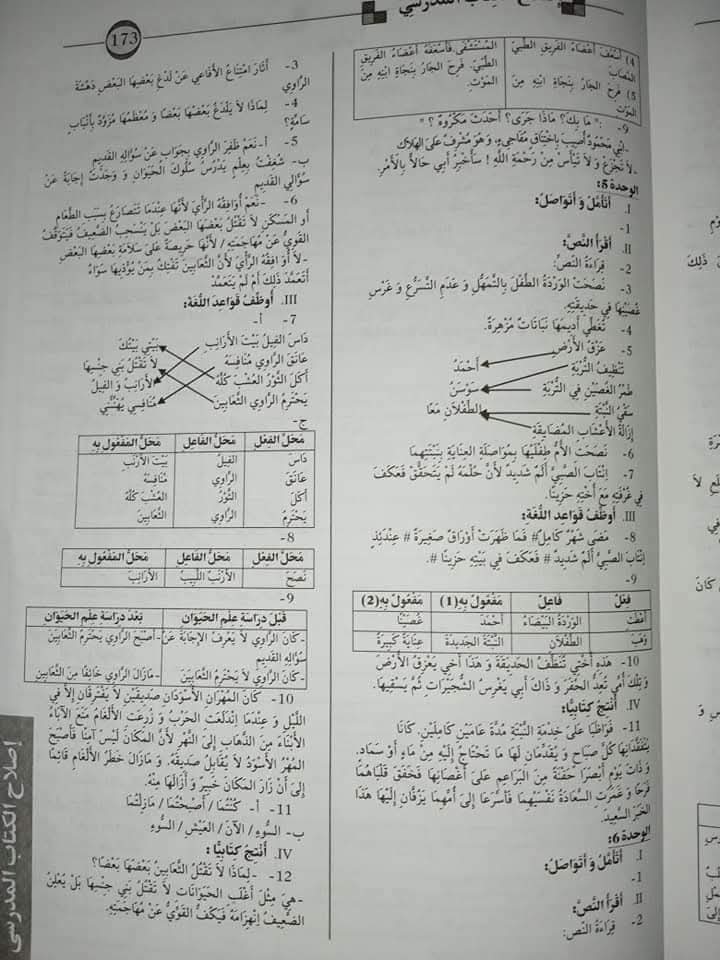 إصلاح الكتاب المدرسي
173
4) أسعف أعضاء الفريق الطبي المصاب
5) فرح الجار بنجاة ابنه من الموت
المستشفى. فأسعفه أعضاء الفريق الطبي. فرح الجار بنجاة ابنه من الموت.
9- :" ما بك؟ ماذا جرى؟ أحدث مكروه؟ "
-ابني محمود أصيب باختناق مفاجىء، وهو مشرف على الهلاك
-لا تجزع و لا تيأس من رحمة الله ! سأخبر أبي حالا بالأمر.
الوحدة 5:
I. أتأمل و أتواصل:
1-
II. أقرأ النص:
2- قراءة النص:
3- نصحت الوردة الطفل بالتمهل و عدم التسرع و غرس
غصنها في حديقته.
4- تغطي أديمها نباتات مزهرة.
5- عزق الأرض
تنظيف التربة
طمر الغصنين في التربة
سقي النبتة
إزالة الأعشاب المضايقة
أحمد
سوسن
الطفلان معا
6- نصحت الأم طفليها بمواصلة العناية بنبتتهما
7- انتاب الصبي ألم شديد لأن حلمه لم يتحقق فعكف
في غرفته مع أخته حزينا.
III. أوظف قواعد اللغة:
8- مضى شهر كامل# فما ظهرت أوراق صغيرة # عندئذ
انتاب الصبي ألم شديد# فعكف في بيته حزينا #.
9-
فعل فاعل مفعول به(1) مفعول به(2)
أعطت الوردة البيضاء أحمد غصنا
وهب الطفلان النبتة الجديدة عناية كبيرة
10- هذه أختي تنظف الحديقة و هذا أخي يعزق الأرض
و تلك أمي تعد الحفر و ذاك أبي يغرس الشجيرات ثم يسقيها.
IV. أنتج كتابيا:
11- فواظبا على خدمة النبتة مدة عامين كاملين. كانا
يتفقدانها كل صباح و يقدمان لها ما تحتاج إليه من ماء أو سماد.
و ذات يوم أبصرا حفنة من البراعم على أغصانها فخفق قلباهما
فرحا و غمرت السعادة نفسيهما فأسرعا إلى أمهما يزفان إليها هذا
الخبر السعيد.
الوحدة 6:
I. أتأمل و أتواصل:
1-
II. أقرأ النص:
2- قراءة النص:
3- أثار امتناع الأفاعي عن لدغ بعضها البعض دهشة
الراوي
4- لماذا لا يلدغ بعضها بعضا و معظمها مزود بأنياب
سامة؟
5- أ- نعم ظفر الراوي بجواب عن سؤاله القديم
ب- شغفت بعلم يدرس سلوك الحيوان و وجدت إجابة عن
سؤالي القديم
6- -نعم أوافقه الرأي لأنها عندما تتصارع بسبب الطعام
أو المسكن لا تقتل بعضها البعض بل ينسحب الضعيف فيتوقف
القوي عن مهاجمته/ لأنها حريصة على سلامة بعضها البعض
-لا أوافقه الرأي لأن الثعابين تفتك بمن يؤذيها سواء
أتعمد ذلك أم لم يتعمد
III. أوظف قواعد اللغة:
7- أ-
داس الفيل بيت الأرانب
عانق الراوي منافسه
أكل الثور العشب كله
يحترم الراوي الثعابين
يبني بيتك
لا تقتل بني جنسها
الأرانب و الفيل
منافسي يهنئني
ج-
محل الفعل محل الفاعل محل المفعول به
داس الفيل بيت الأرنب
عانق الراوي منافسه
أكل الثور العشب كله
يحترم الراوي الثعابين
8-
محل الفعل محل الفاعل محل المفعول به
نصح الأرنب اللبيب الأرانب
9-
قبل دراسة علم الحيوان بعد دراسة علم الحيوان
-كان الراوي لا يعرف الإجابة عن سؤاله القديم -أصبح الراوي يحترم الثعابين
-كان الراوي لا يحترم الثعابين -مازال الراوي خائفا من الثعابين
10- كان المهران الأسودان صديقين لا يفترقان إلا في
الليل و عندما اندلعت الحرب و زرعت الألغام منع الآباء
الأبناء من الذهاب إلى النهر لأن المكان ليس آمنا فأصبح
المهر الأسود لا يقابل صديقه. و مازال خطر الألغام قائما
إلى أن زار المكان خبير و أزالها منه.
11- أ- كنتما / أصبحتما / مازلتما
ب- السوء/ الآن/ العيش/ السوء
IV. أنتج كتابيا :
12- -لماذا لا تقتل الثعابين بعضها بعضا؟
-هي مثل أغلب الحيوانات لا تقتل بني جنسها بل يعلن
الضعيف انهزامه فيكف القوي عن مهاجمته.
إصلاح الكتاب المدرسي